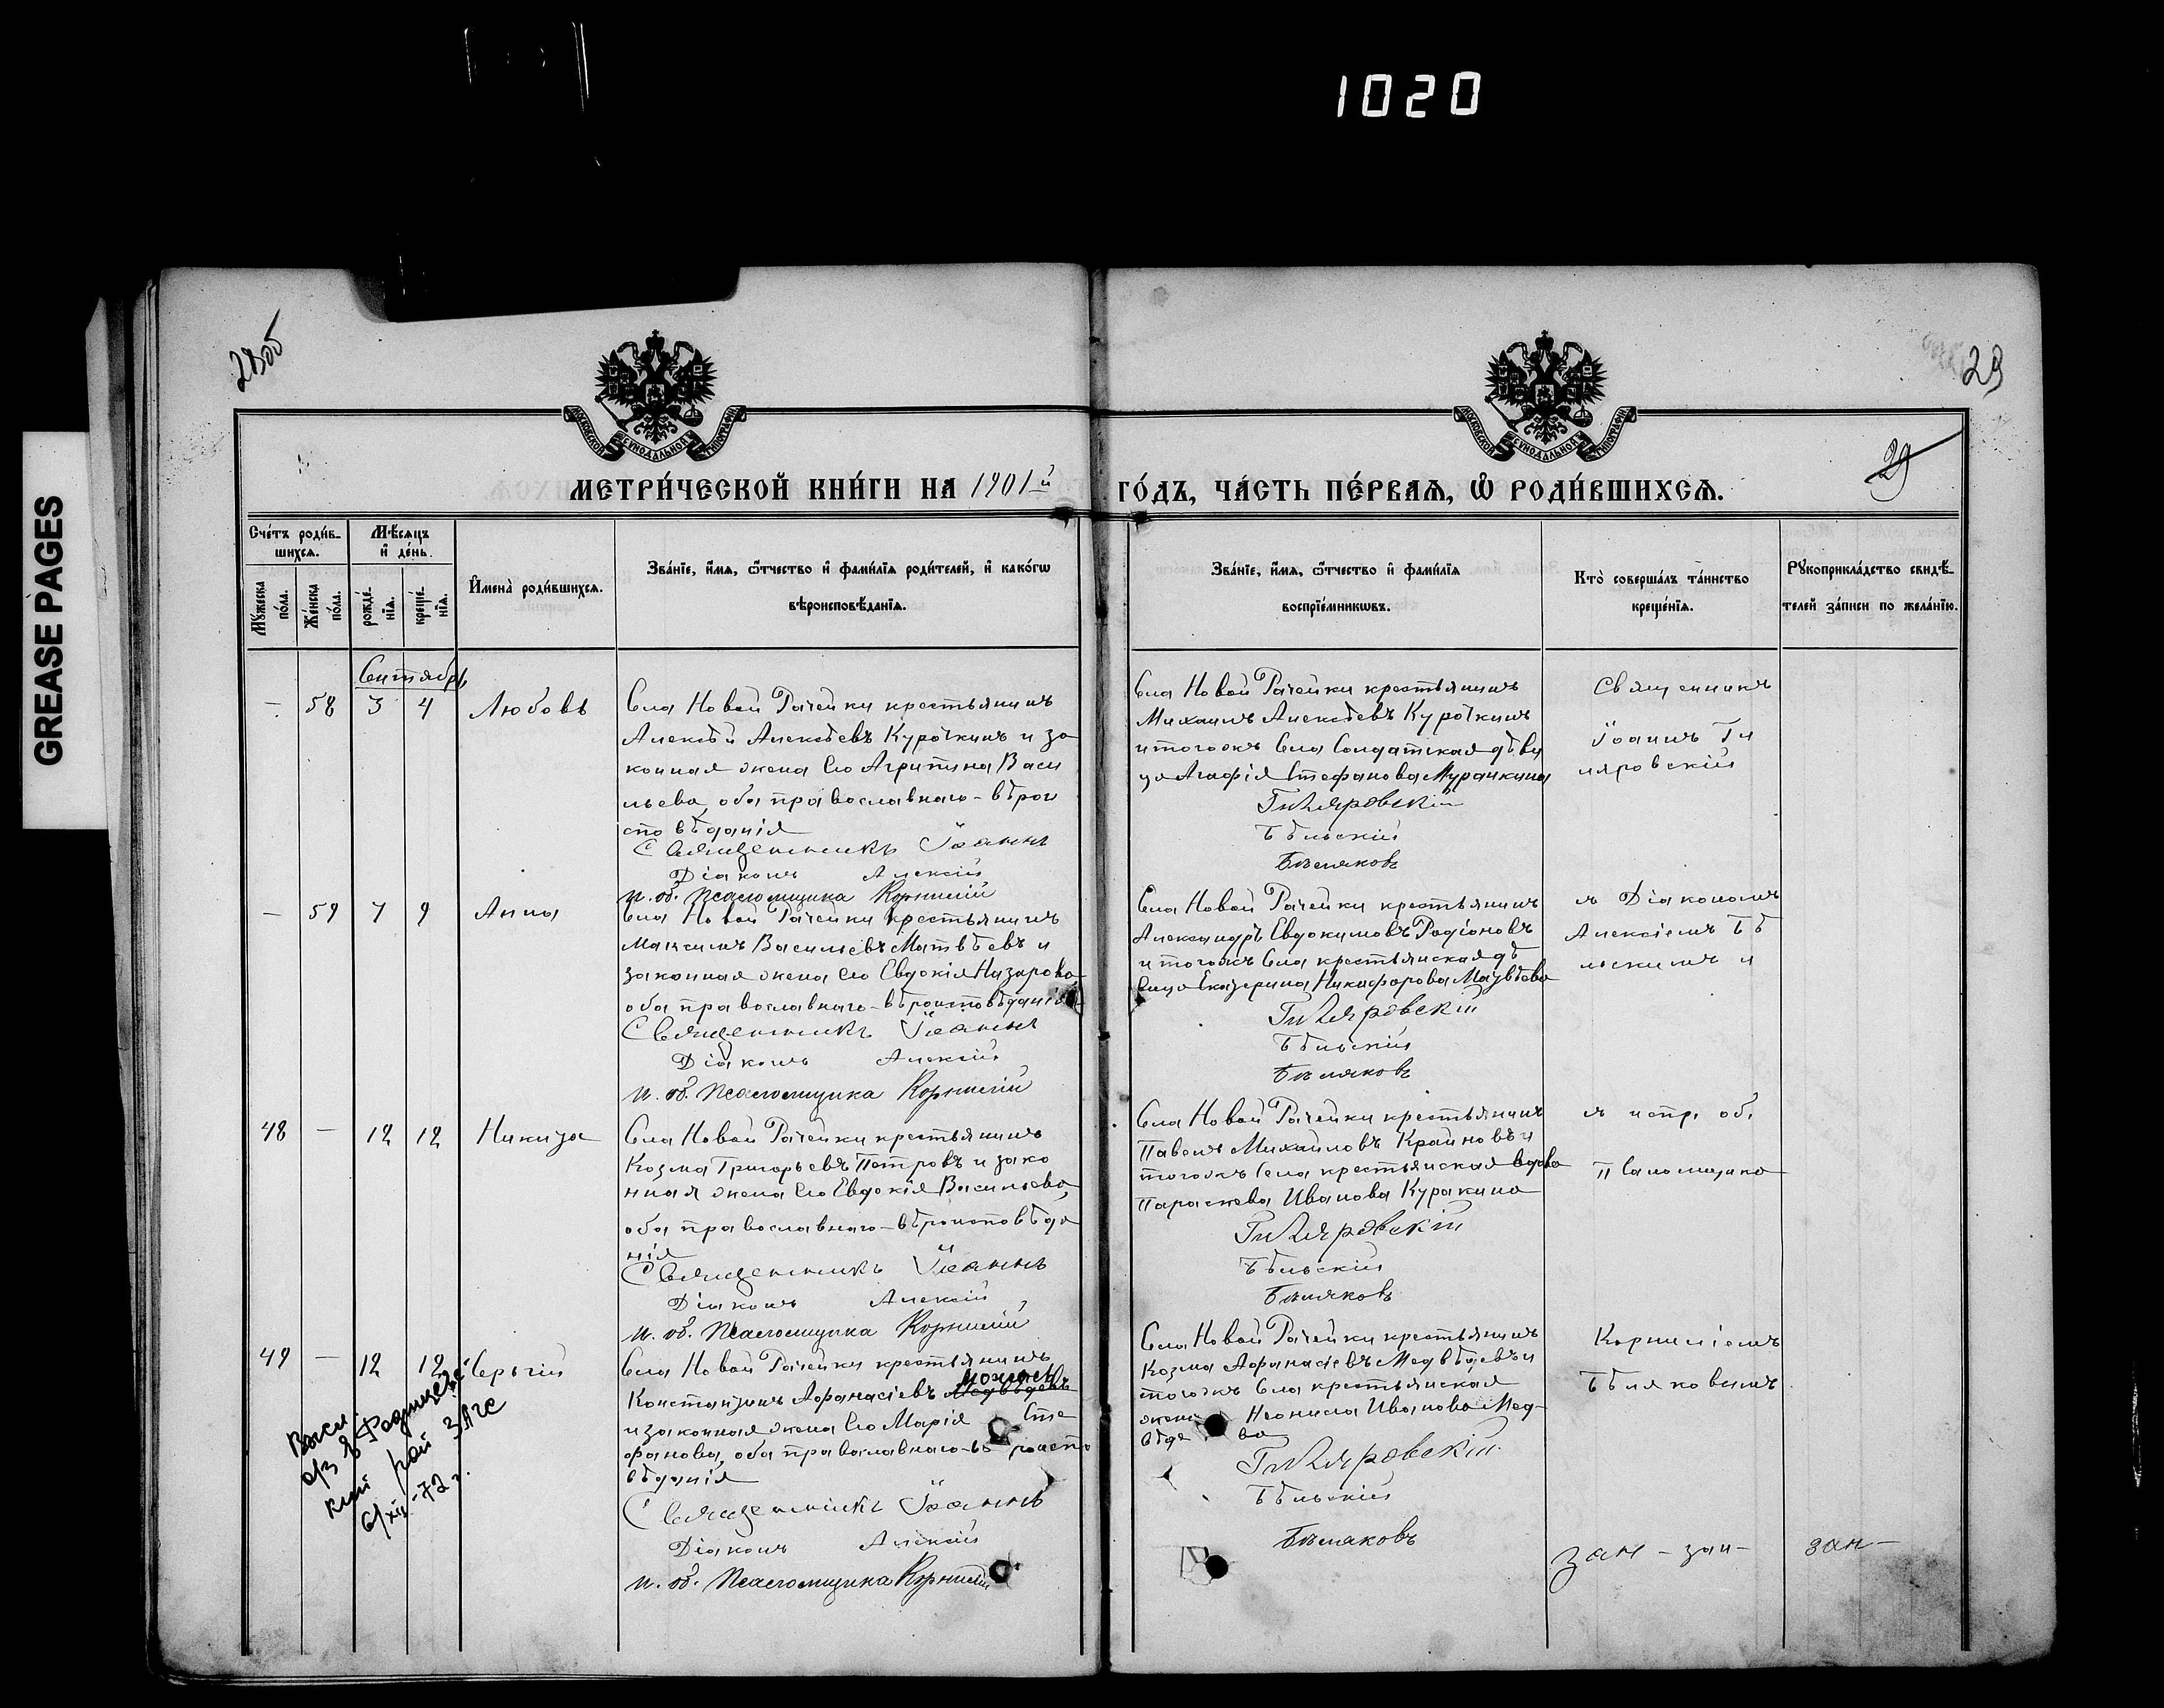 1020
GREASE PAGES
28об
29
29
МОСКОВСКОЙ СѴНОДАЛЬНОЙ ТИПОГРАФІИ
МОСКОВСКОЙ СѴНОДАЛЬНОЙ ТИПОГРАФІИ
МЕТРИ́ЧЕСКОЙ КНИ́ГИ НА 1901й
ГО́ДЪ, ЧА́СТЬ ПЕ́РВАѦ, Ѡ҆ РОДИ́ВШИХСѦ.
Сче́тъ роди́в-
шихсѧ.
Мѣ́сѧцъ
и҆ де́нь.
Мꙋ́жеска
по́ла.
Же́нска
по́ла.
рожде́-
нїѧ.
креще́-
нїѧ.
И҆мена̀ роди́вшихсѧ.
Зва́нїе, и҆́мѧ, ѻ҆́тчество и҆ фами́лїѧ роди́телей, и҆ како́гѡ
вѣроисповѣ́данїѧ.
Зва́нїе, и҆́мѧ, ѻ҆́тчество и҆ фами́лїѧ
воспрїе́мникѡвъ.
Кто̀ соверша́лъ та́инство
креще́нїѧ.
Рꙋкоприкла́дство свидѣ́-
телей за́писи по жела́нїю.
Сентябрь
— 58 3 4 Любовь
Села Новой Рачейки крестьянинъ
Алексѣй Алексѣевъ Куроткинъ и за
конная жена его Агрипина Васи
льева, оба православнаго-вѣрои
сповѣданія
Священникъ Іоаннъ
Діаконъ Алексій
и. об. псаломщика Корнилій
Села Новой Рачейки крестьянинъ
Михаилъ Алексѣевъ Куроткинъ
и тогожъ Села Солдатская дѣви
ца Агафія Стефанова Муранкина
Гиляровскій
Бѣльскій
Бѣляковъ
Священникъ
Іоаннъ Ги
ляровскій
— 59 7 9 Анна
Села Новой Рачейки крестьянинъ
Максимъ Васильевъ Матвѣевъ и
законная жена его Евдокія Назарова
оба православнаго-вѣроисповѣданія
Священникъ Іоаннъ
Діаконъ Алексій
и. об. псаломщика Корнилій
Села Новой Рачейки крестьянинъ
Александръ Евдокимовъ Родіоновъ
и тогожъ Села крестьянская дѣ
вица Екатерина Никифорова
Гиляровскій
Бѣльскій
Бѣляковъ
съ Діакономъ
Алексіемъ Бѣ
льскимъ и
48 — 12 12 Никита
Села Новой Рачейки крестьянинъ
Козма Григорьевъ Петровъ и зако
нная жена его Евдокія Васильева,
оба православнаго-вѣроисповѣда
нія
Священникъ Іоаннъ
Діаконъ Алексій
и. об. псаломщика Корнилій
Села Новой Рачейки крестьянинъ
Павелъ Михайловъ Крайновъ и
тогожъ Села крестьянская вдова
Параскева Иванова Куракина
Гиляровскій
Бѣльскій
Бѣляковъ
съ испр. об.
Псаломщика
49 — 12 12 Сергій
Села Новой Рачейки крестьянинъ
Константинъ Афанасіевъ Медвѣдевъ
и законная жена его Марія Сте
фанова, оба православнаго-вѣроиспо
вѣданія
Священникъ Іоаннъ
Діаконъ Алексій
и. об. псаломщика Корнилій
Села Новой Рачейки крестьянинъ
Козма Афанасіевъ Медвѣдевъ и
тогожъ Села крестьянская
жена Неонила Иванова Мед-
вѣде ва
Гиляровскій
Бѣльскій
Бѣляковъ
Корниліемъ
Бѣляковымъ
Высл.
рай ЗАГС
6/XII-72 г.